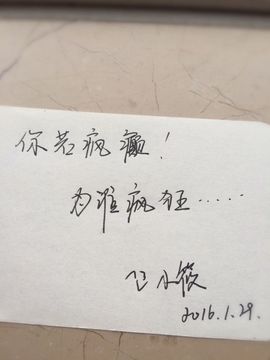 你若疯癫！
为谁疯狂……
飞小筱
2016.1.29.